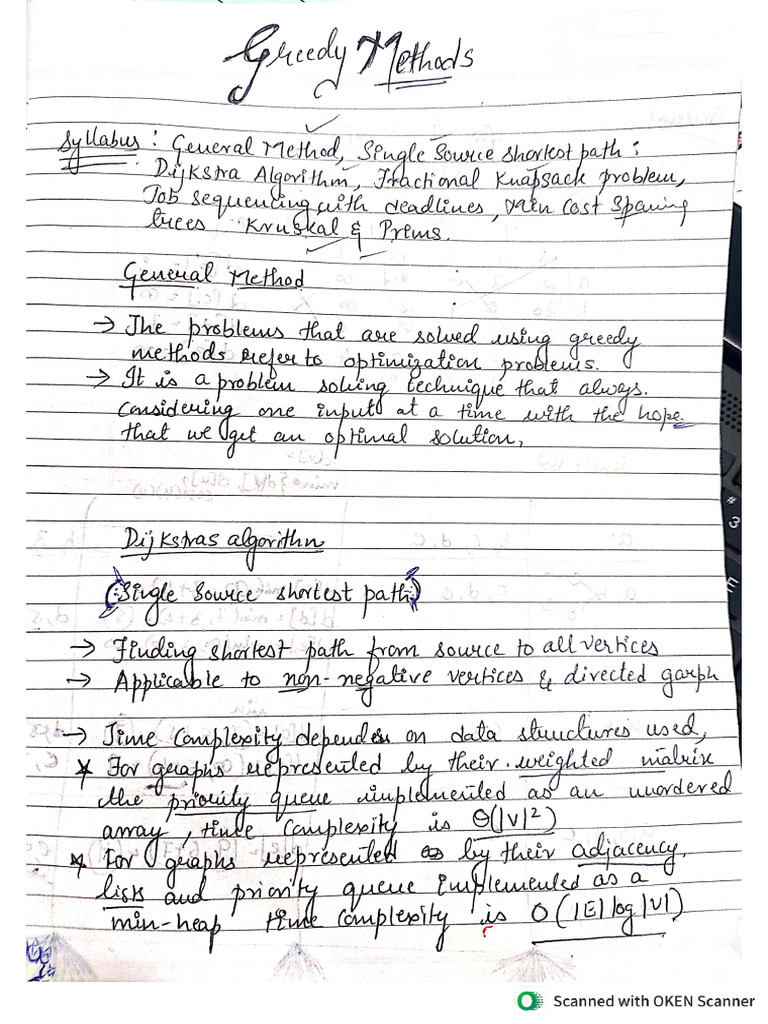 Greedy Methods
Syllabus: General Method, Single Source shortest path:
Dijkstra Algorithm, Fractional Knapsack problem,
Job sequencing with deadlines, Min Cost Spaning
trees Kruskal & Prims.
General Method
→ The problems that are solved using greedy
methods refer to optimization problems.
→ It is a problem solving technique that always.
considering one input at a time with the hope
that we get an optimal solution,
Dijkstras algorithm
(Single Source shortest path)
→ Finding shortest path from source to all vertices
→ Applicable to non-negative vertices & directed garph
→ Time Complexity depends on data structures used,
* For graphs represented by their weighted matrix
the priority queue implemented as an unordered
array, time complexity is Θ(|V|²)
* For graphs represented by their adjacency
lists and priority queue implemented as a
min-heap time complexity is O(|E|log|V|)
#
3
E
Scanned with OKEN Scanner